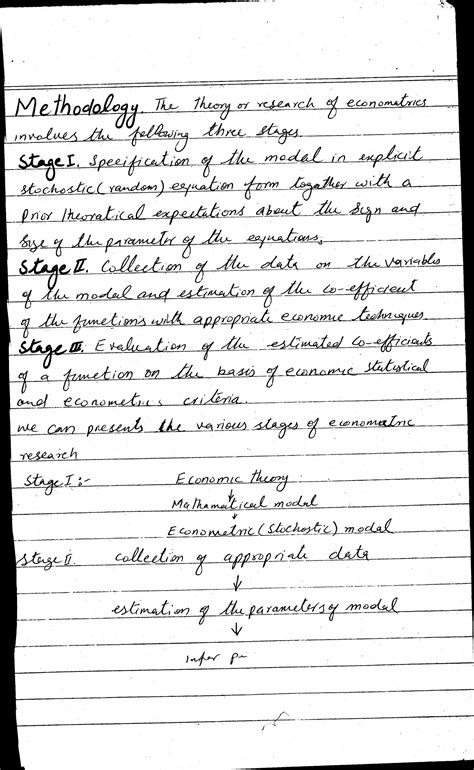 Methodology. The theory or research of econometrics
involves the following three stages.
Stage I. Specification of the modal in explicit
stochostic (random) equation form together with a
prior theoratical expectations about the sign and
size of the parameter of the equations,
Stage II. Collection of the data on the variables
of the modal and estimation of the co-efficient
of the functions with appropriate economic techniques.
Stage III. Evaluation of the estimated co-efficients
of a function on the basis of economic statistical
and econometric criteria.
we can presents the various stages of econometric
research
Stage I :- Economic theory
↓
Mathamatical modal
↓
Econometric (Stochostic) modal
Stage II. collection of appropriate data
↓
estimation of the parameters of modal
↓